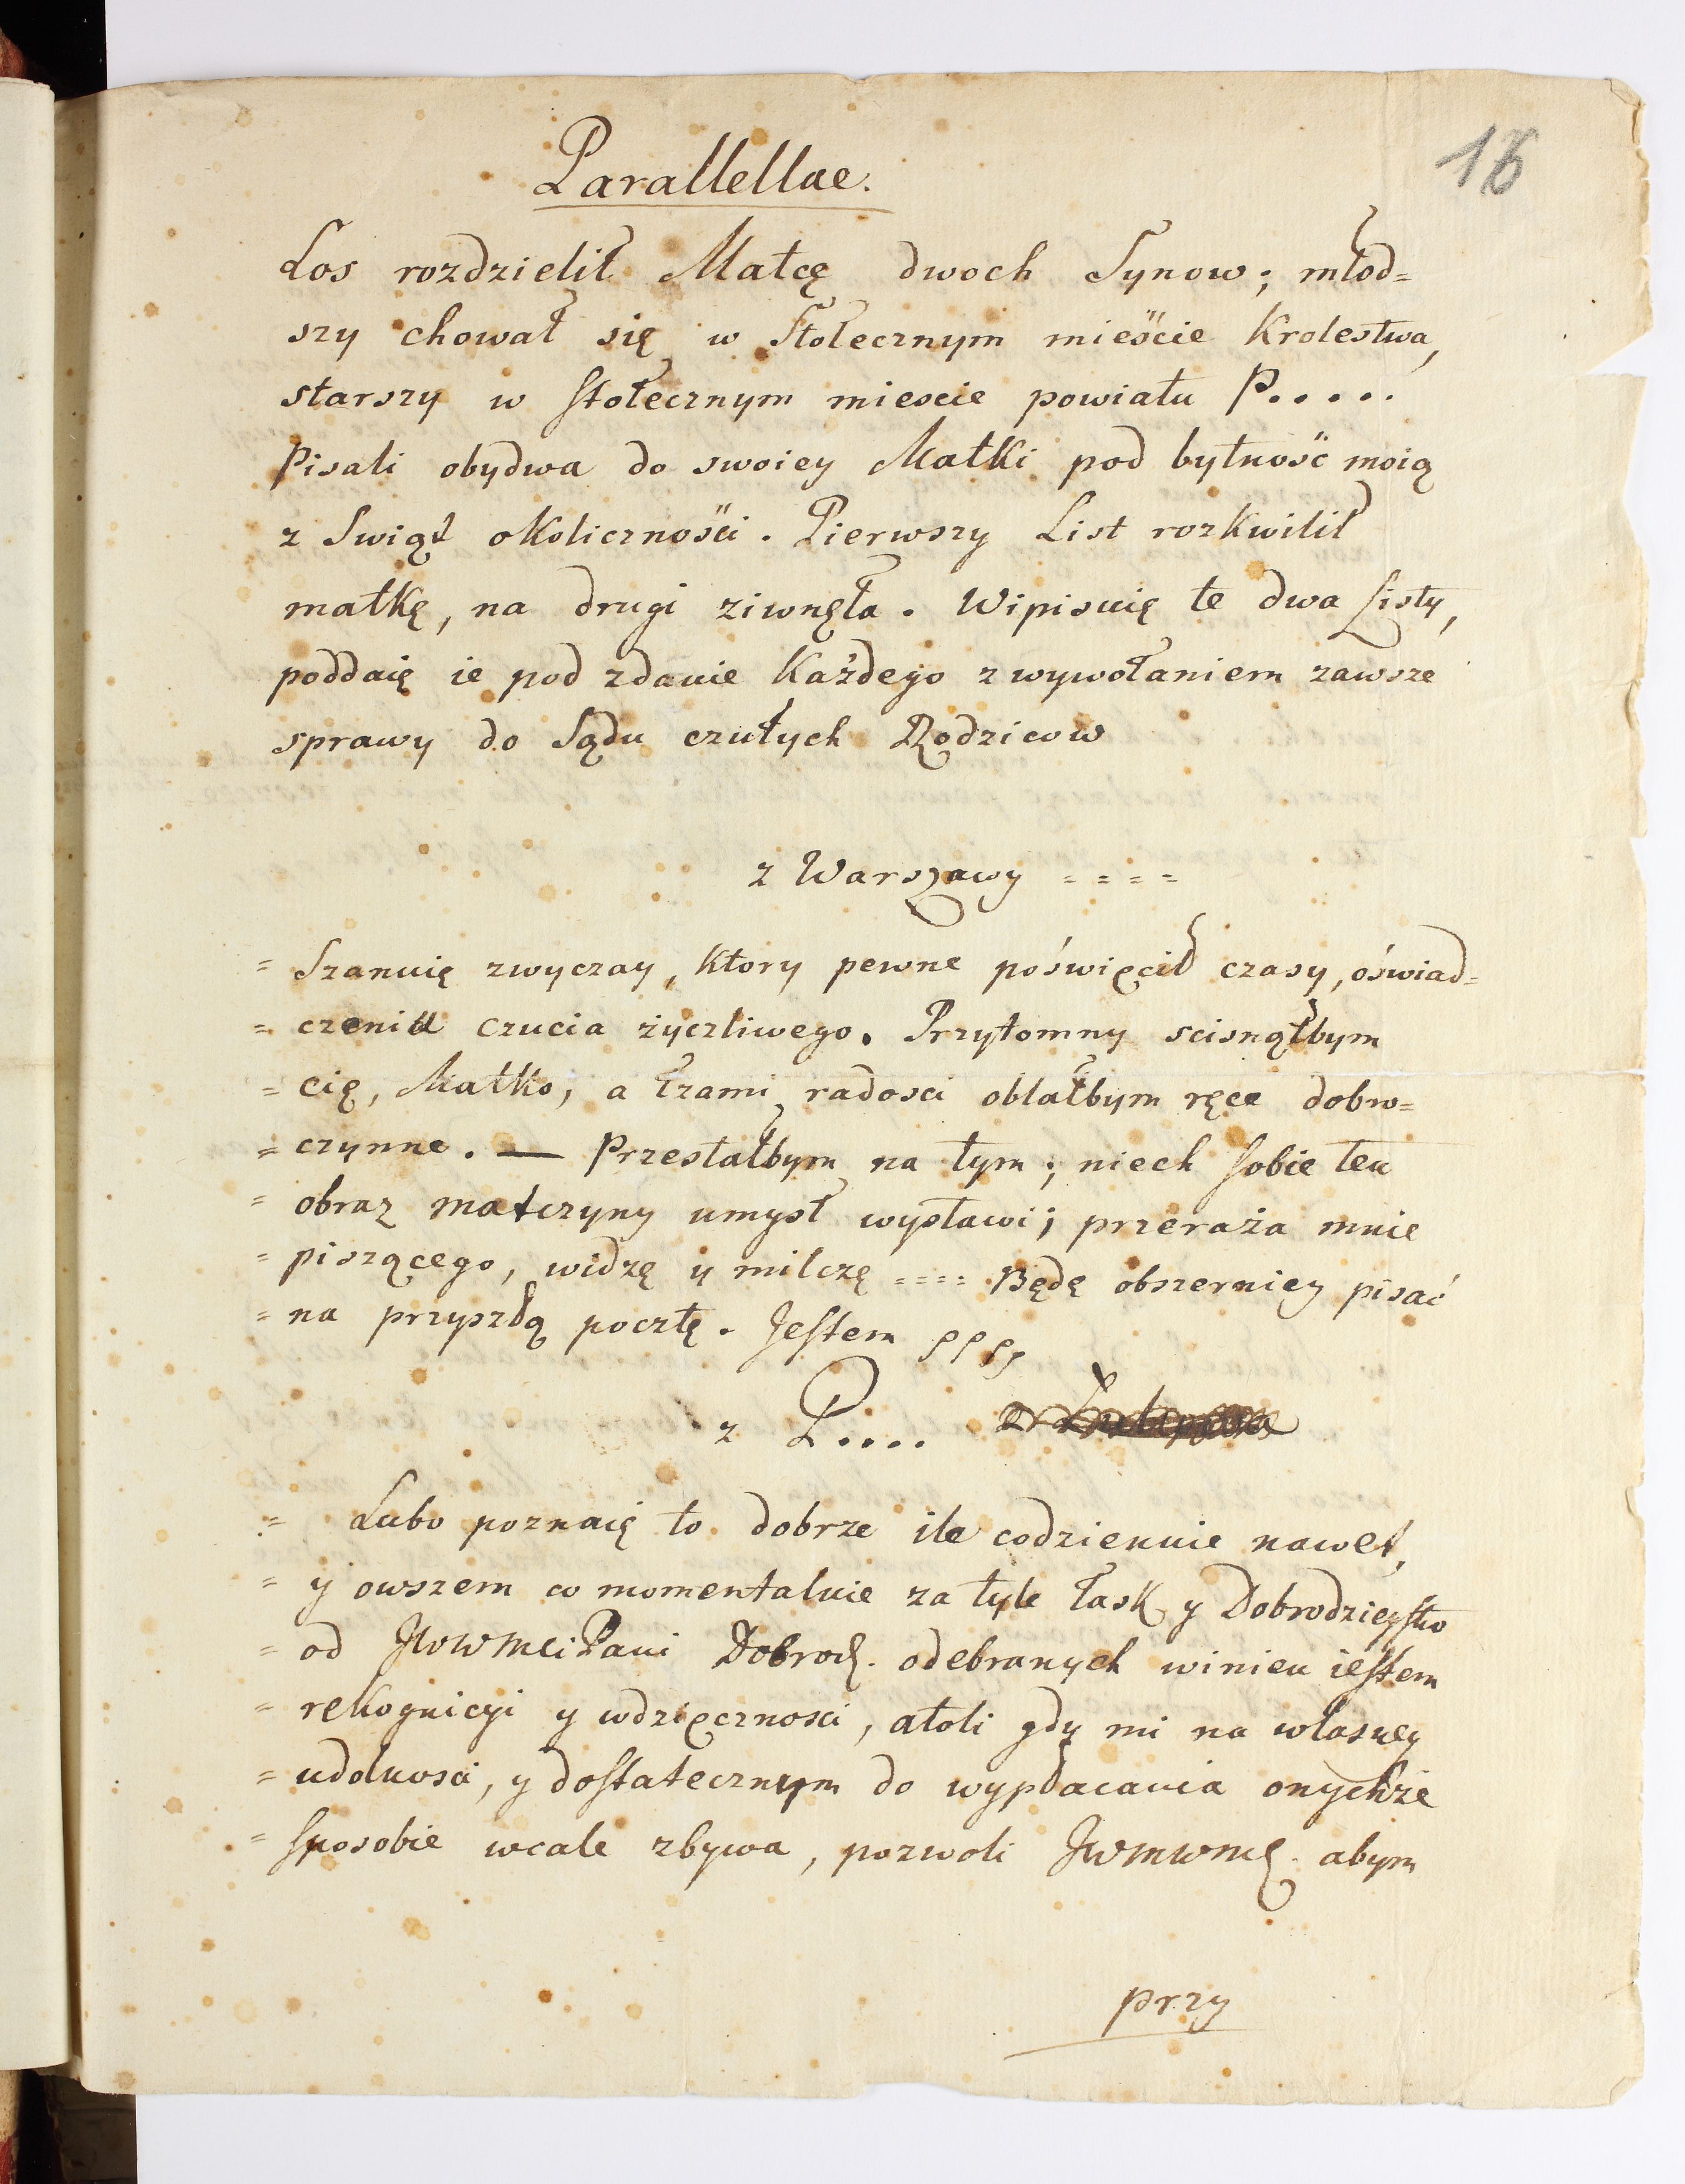 16
Parallellae.
Los rozdzielił Matcę dwoch Synow; młod=
szy chował się w Stołecznym mieście Krolestwa,
starszy w stołecznym miescie powiatu P.....
Pisali obydwa do swoiey Matki pod bytność moią
z Swiąt okoliczności. Pierwszy List rozkwilił
matkę, na drugi ziwnęła. Wipisuię te dwa Listy,
poddaię ie pod zdanie Każdego z wywołaniem zawsze
sprawy do Sądu czułych Rodzicow
z Warszawy = = = =
= Szanuię zwyczay, ktory pewne poświęcił czasy, oświad=
= czenia czucia życzliwego. Przytomny scisnąłbym
= cię, Matko, a łzami radosci oblałbym ręce dobro=
= czynne. — Przestałbym na tym; niech sobie ten
= obraz matczyny umysł wystawi; przeraża mnie
= piszącego, widzę y milczę ==== Będę obszerniey pisać
= na przyszłą pocztę. Jestem
z P....
= Lubo poznaię to dobrze ile codziennie nawet,
= y owszem co momentalnie za tyle łask y Dobrodzieystw
= od JWWMci Pani Dobrodz. odebranych winien iestem
= rekognicyi y wdzięcznosci, atoli gdy mi na własney
= udolnosci, y dostatecznym do wypłacania onychże
= sposobie wcale zbywa, pozwoli abym
przy